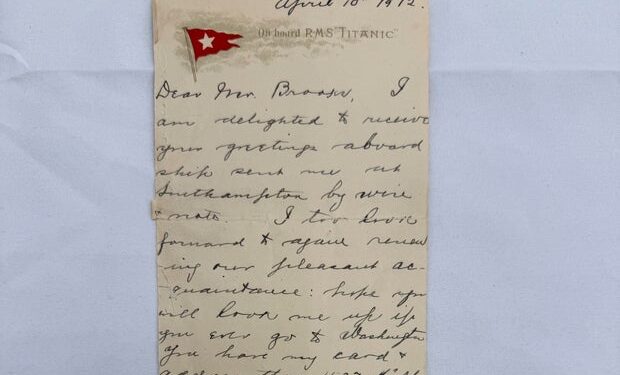 April 10 1912.
On board R.M.S "TITANIC"
Dear Mr. I
am delighted to receive
your greetings aboard
ship sent me at
Southampton by wire
& note. I too look
forward to again renew
ing our pleasant ac-
quaintance: hope you
will look me up if
you ever go to Washington
You have my card &